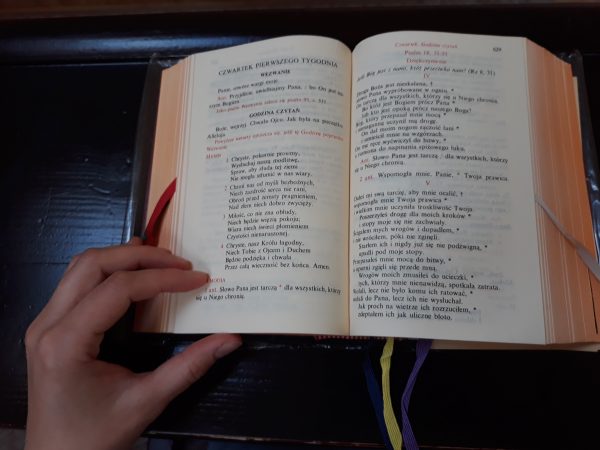 CZWARTEK PIERWSZEGO TYGODNIA
WEZWANIE
Panie, otwórz wargi moje.
Ant. Przyjdźcie, uwielbiajmy Pana, † bo On jest na-
szym Bogiem.
GODZINA CZYTAŃ
Boże, wejrzyj. Chwała Ojcu. Jak była na początku.
Alleluja.
Powyższe teksty opuszcza się, jeśli tę Godzinę poprzedza
Wezwanie.
HYMN
1 Chryste, pokornie prosimy,
Wysłuchaj naszą modlitwę,
Spraw, aby złuda tej ziemi
Nie mogła stłumić w nas wiary.
2 Chroń nas od myśli bezbożnych,
Niech zazdrość serca nie rani,
Obroń przed zemsty pragnieniem,
Zło niech dobro zwycięży.
3 Miłość, co zła zna obłudy,
Niech będzie więzią pokoju;
Wiara niech świeci płomieniem
Czystości nienaruszonej.
4 Chryste, nasz Królu łagodny,
Niech Tobie z Ojcem i Duchem
Będzie podzięka i chwała
Przez całą wieczność bez końca. Amen.
1 ant. Słowo Pana jest tarczą * dla wszystkich, którzy
się u Niego chronią.
Czwartek, Godzina czytań
629
Psalm 18, 31-51
Dziękczynienie
Jeśli Bóg jest z nami, któż przeciwko nam? (Rz 8, 31)
IV
Droga Boża jest nieskalana, †
słowo Pana wypróbowane w ogniu, *
On tarczą dla wszystkich, którzy się u Niego chronią.
Bo któż jest Bogiem prócz Pana *
lub kto jest opoką prócz naszego Boga?
Bóg, który przepasał mnie mocą *
i nienaganną uczynił mą drogę.
On dał moim nogom rączość łani *
i umocnił mnie na wzgórzach.
On me ręce wyćwiczył do bitwy, *
a ramiona do napinania spiżowego łuku.
Ant. Słowo Pana jest tarczą / dla wszystkich, którzy
się u Niego chronią.
2 ant. Wspomogła mnie, Panie, * Twoja prawica.
V
Dałeś mi swą tarczę, aby mnie ocalić, †
wspomogła mnie Twoja prawica *
i wielkim mnie uczyniła troskliwość Twoja.
Poszerzyłeś drogę dla moich kroków *
i stopy moje się nie zachwiały.
Ścigałem mych wrogów i dopadłem, *
nie wróciłem, póki nie zginęli.
Starłem ich i nigdy już się nie podźwigną, *
upadli pod moje stopy.
Przepasałeś mnie mocą do bitwy, *
a oporni zgięli się przede mną.
Wrogów moich zmusiłeś do ucieczki, *
tych, którzy mnie nienawidzą, spotkała zatrata.
Wołali, lecz nie było komu ich ratować, *
wołali do Pana, lecz ich nie wysłuchał.
Jak proch na wietrze ich rozrzuciłem, *
zdeptałem ich jak uliczne błoto.